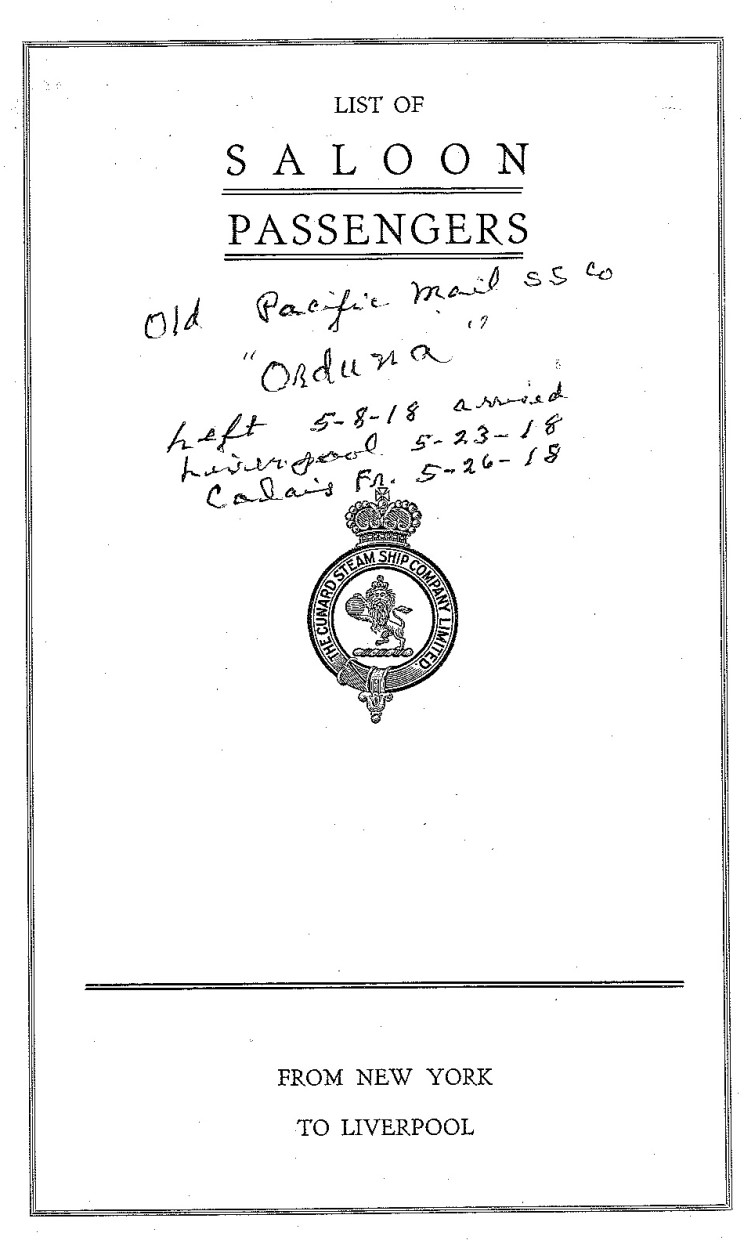 LIST OF
SALOON
PASSENGERS
Old Pacific Mail SS Co
"Orduna"
Left 5-8-18 arrived
Liverpool 5-23-18
Calais Fr. 5-26-18
THE CUNARD STEAM SHIP COMPANY LIMITED.
FROM NEW YORK
TO LIVERPOOL